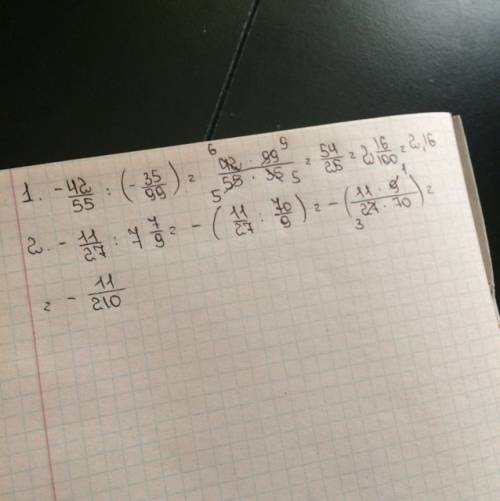 1. -42/55 : (-35/99) = 42 · 99/55 · 35 = 54/25 = 2 16/100 = 2,16
2. -11/27 : 7 7/9 = -(11/27 : 70/9) = -(11 · 9/27 · 70) =
= -11/210